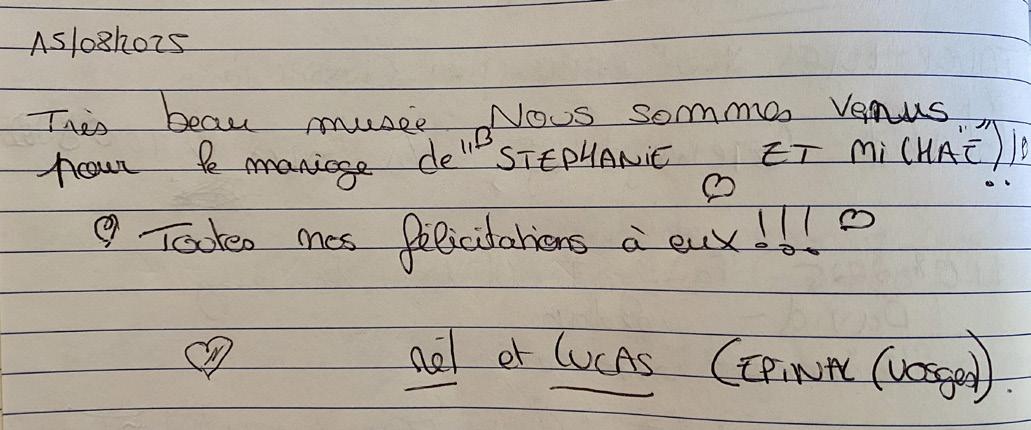 15/08/2025
Très beau musée. Nous sommes venus
pour le mariage de "STEPHANIE ET MiCHAË)!!
Toutes nos félicitations à eux !!!
et LUCAS (EPINAL (Vosges)).